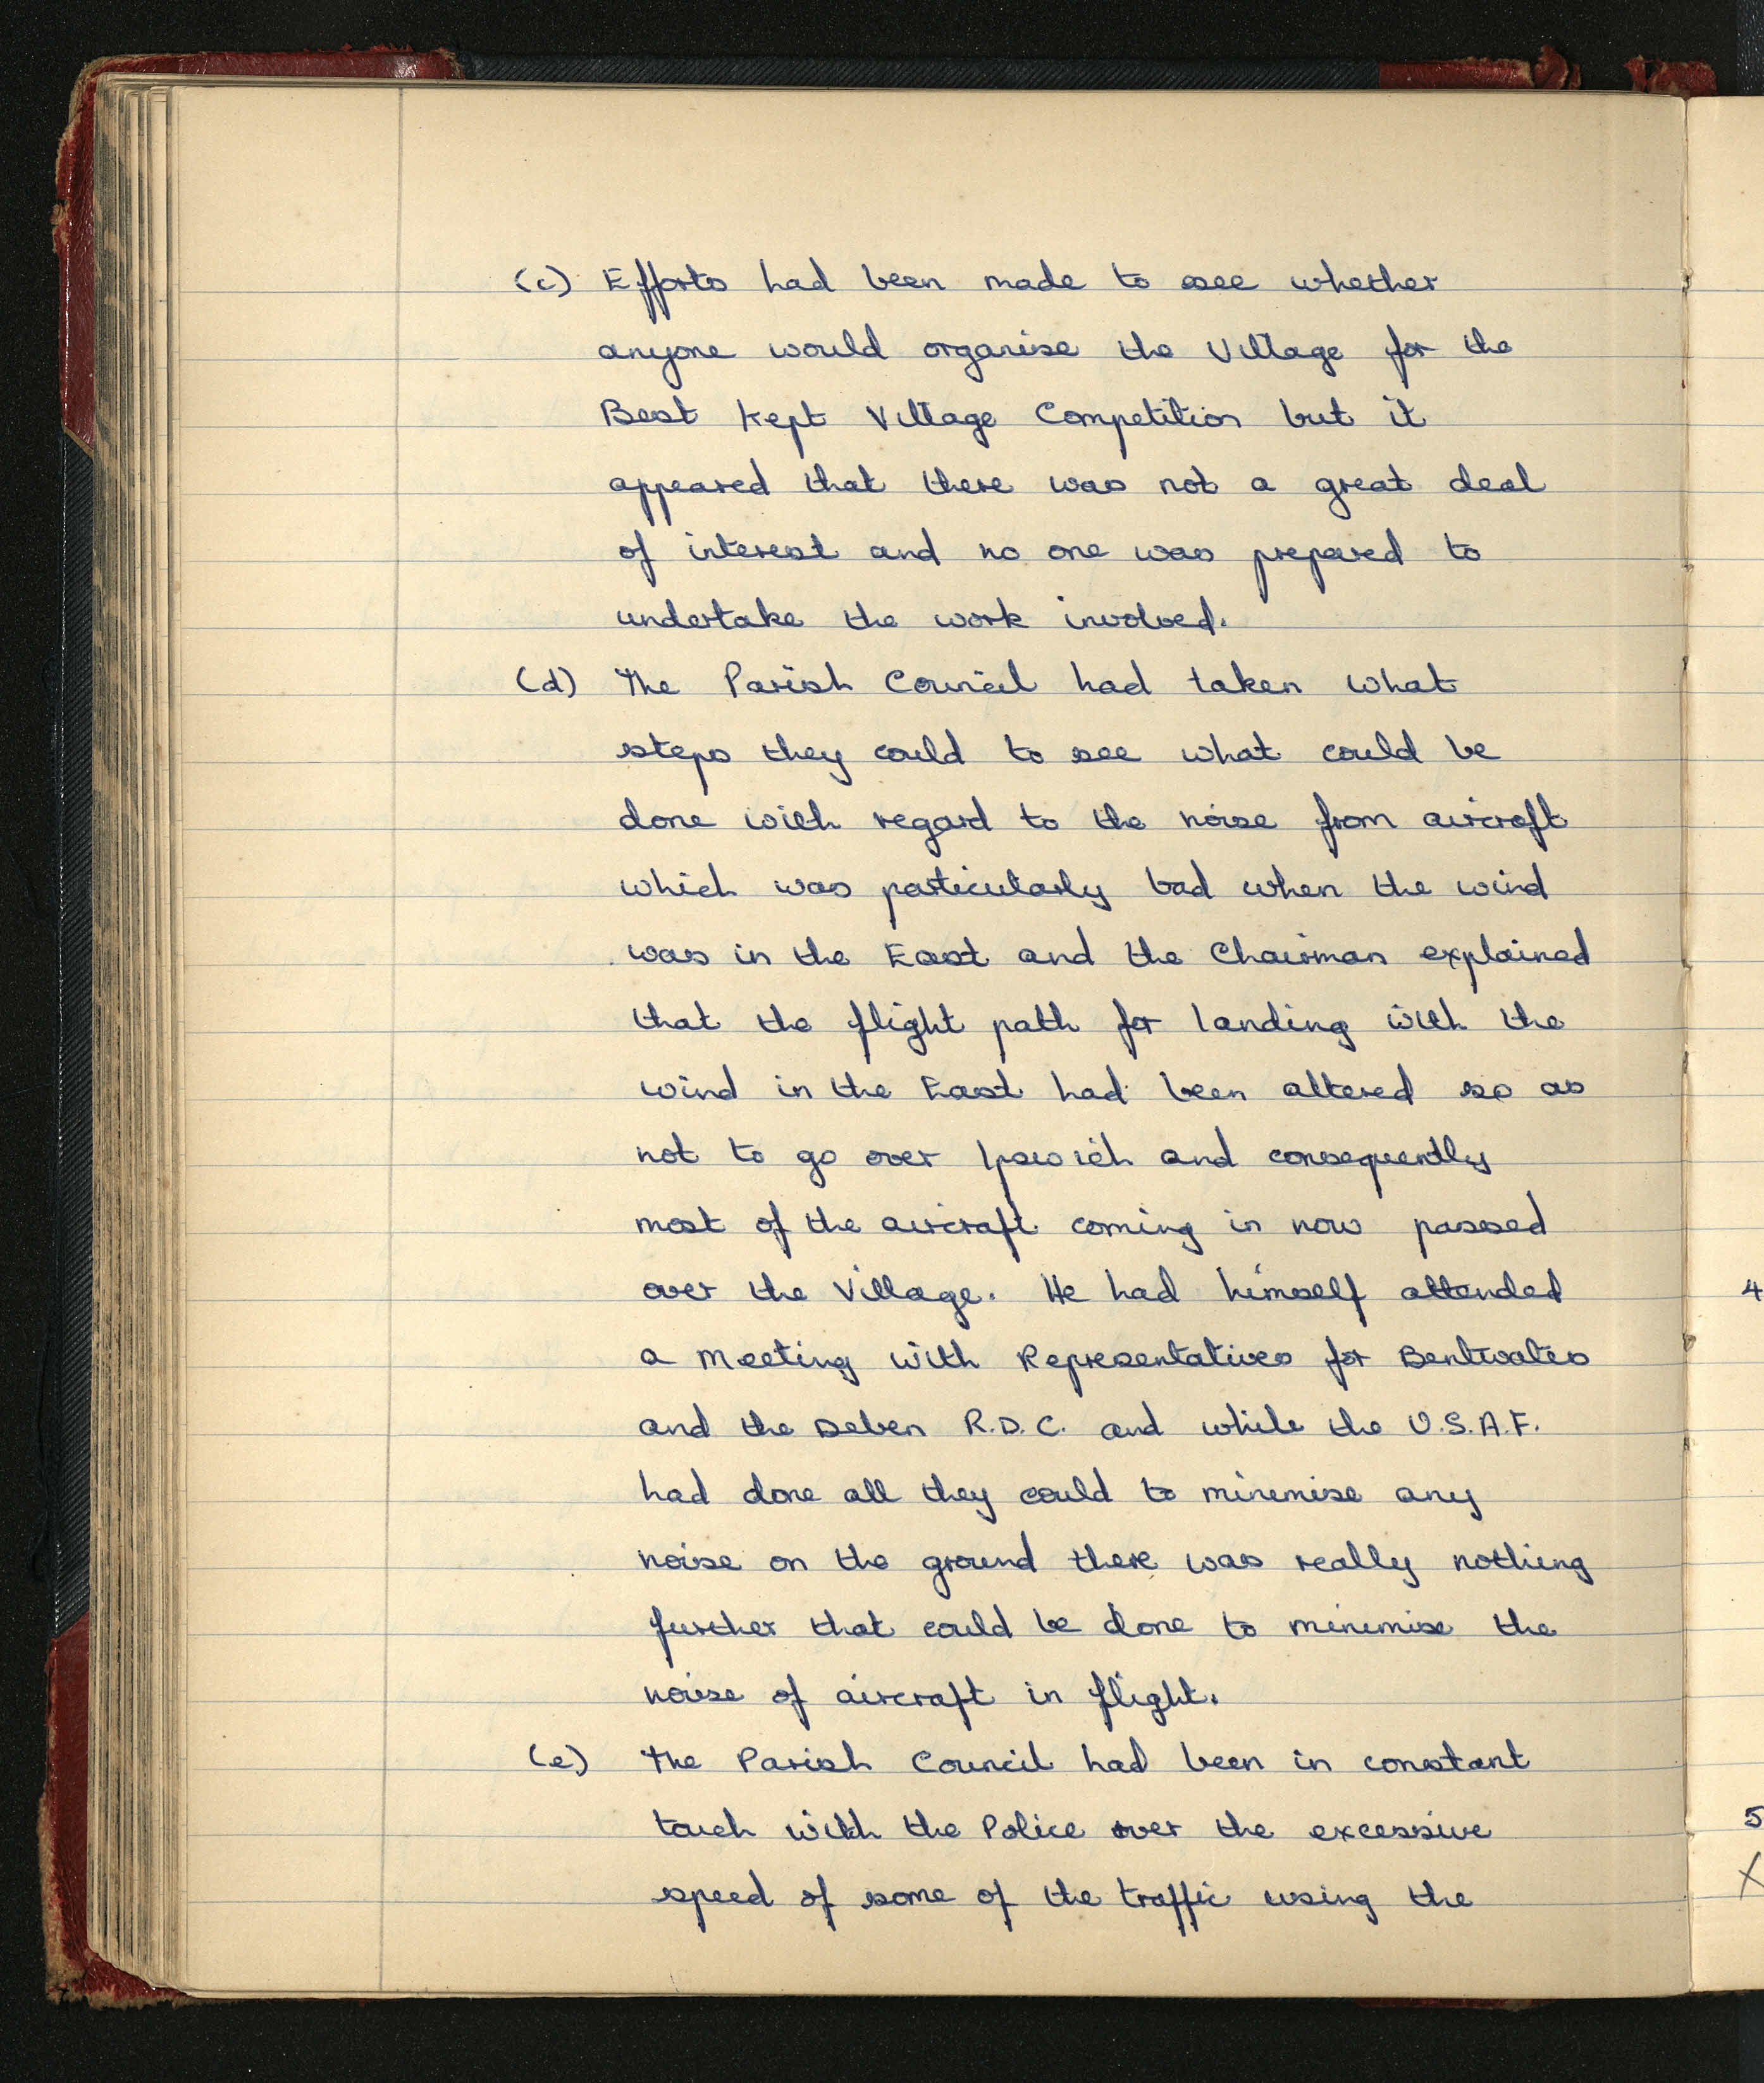 (c) Efforts had been made to see whether
anyone would organise the Village for the
Best Kept Village Competition but it
appeared that there was not a great deal
of interest and no one was prepared to
undertake the work involved.
(d) The Parish Council had taken what
steps they could to see what could be
done with regard to the noise from aircraft
which was particularly bad when the wind
was in the East and the Chairman explained
that the flight path for landing with the
wind in the East had been altered so as
not to go over Ipswich and consequently
most of the aircraft coming in now passed
over the Village. He had himself attended
a Meeting with Representatives for Bentwaters
and the Deben R.D.C. and while the U.S.A.F.
had done all they could to minimise any
noise on the ground there was really nothing
further that could be done to minimise the
noise of aircraft in flight.
(e) The Parish Council had been in constant
touch with the Police over the excessive
speed of some of the traffic using the
4
5
X